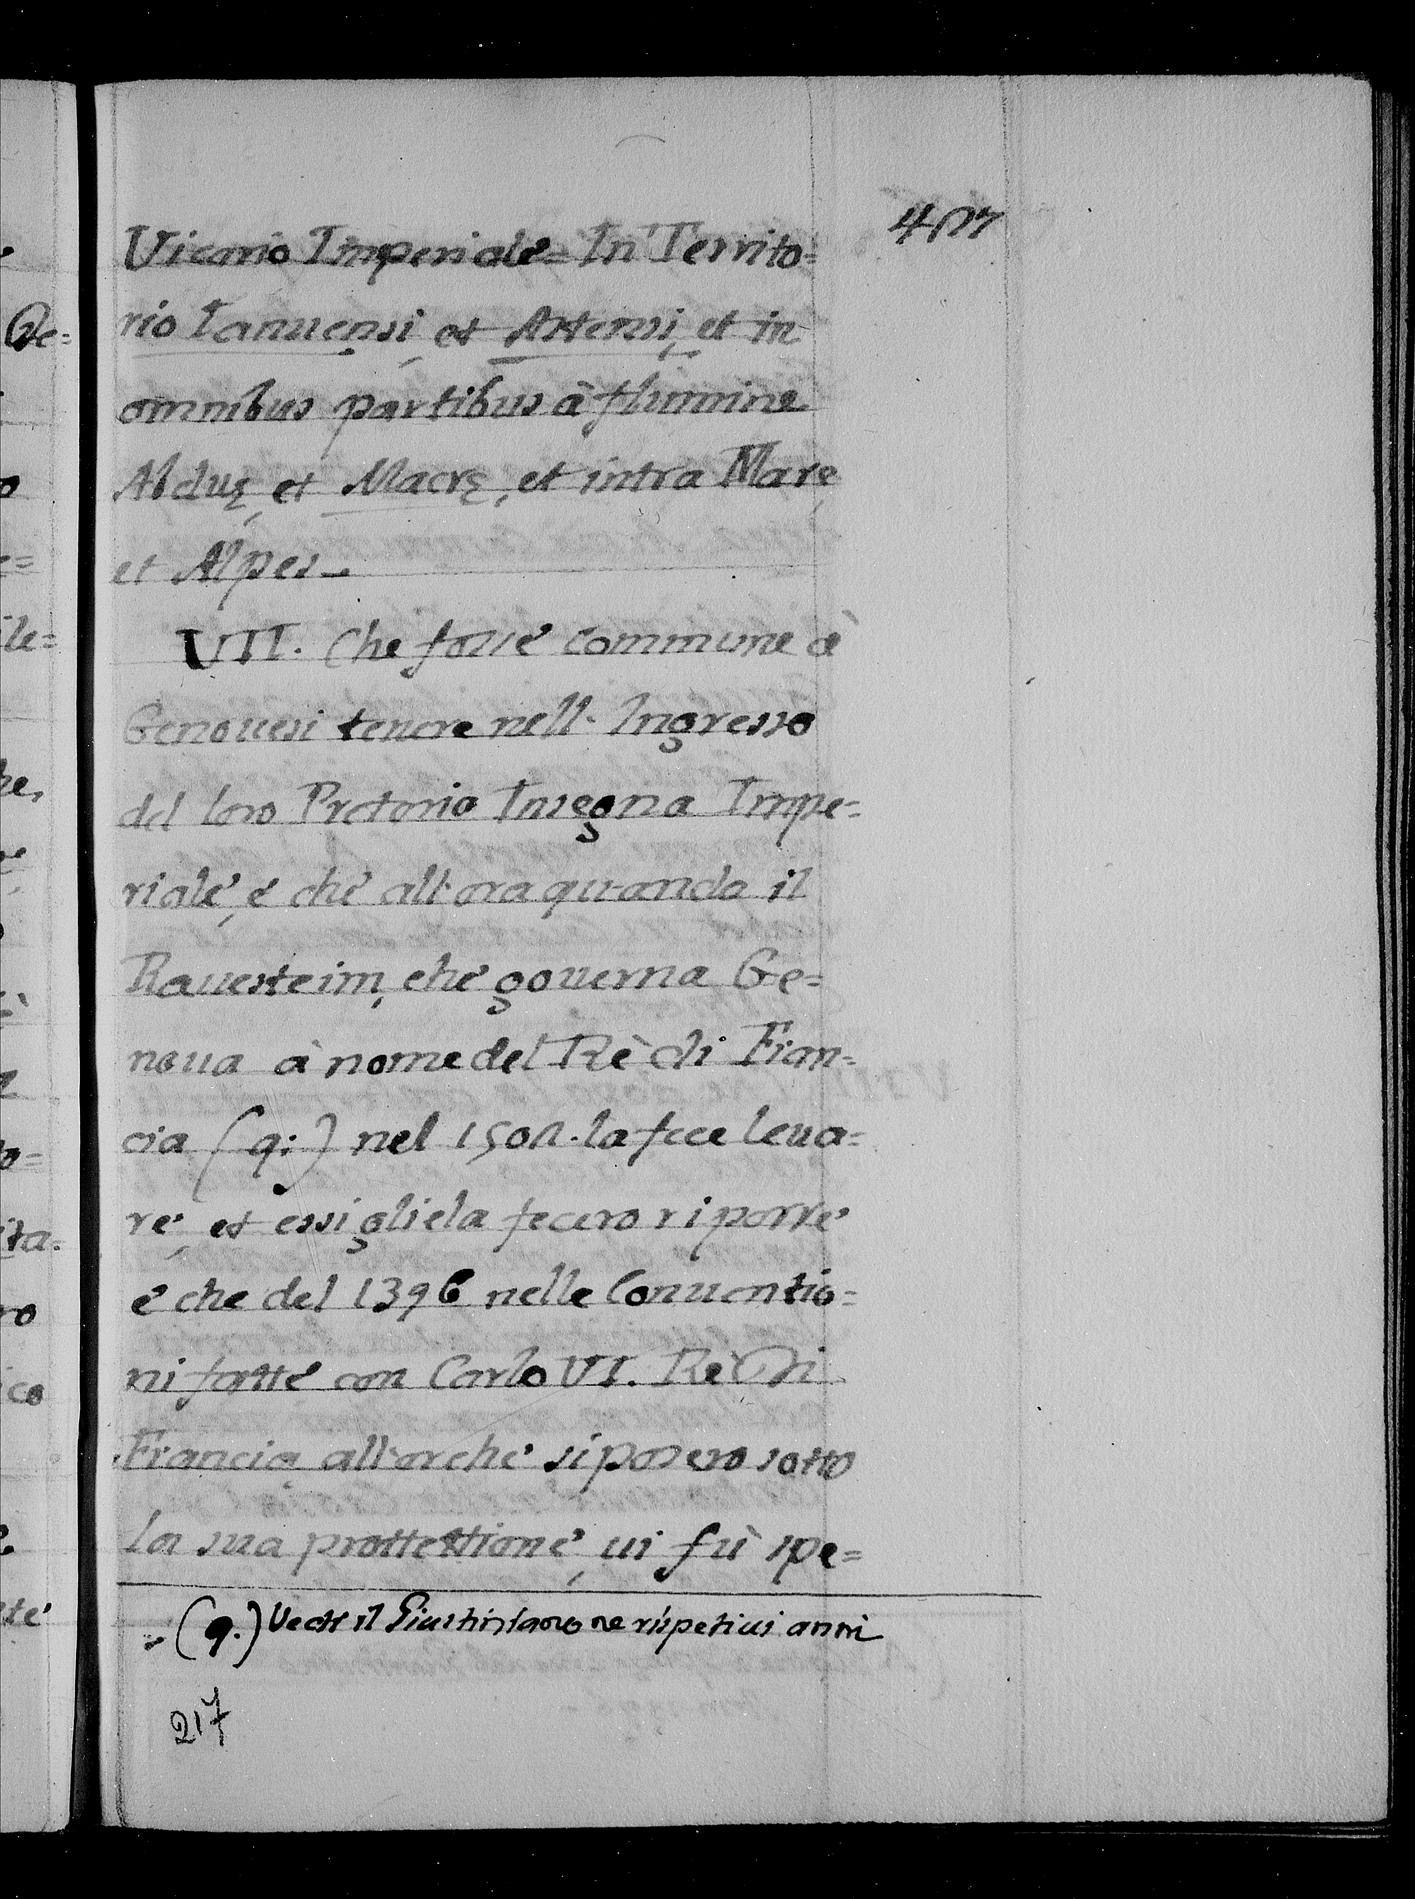 Vicario Imperiale = In Territo=
rio Ianuensi, et Astensi, et in
omnibus partibus à flumine
Abduę, et Macrę, et intra Mare
et Alpes
VII. Che fosse commune à
Genouesi tenere nell. Ingresso
del loro Pretorio Insegna Impe=
riale, e che all'ora quando il
Rauesteim, che gouerna Ge=
noua à nome del Rè di Fran=
cia (q:) nel la fece leua=
re, et essi gliela fecero riporre
e che del 1396 nelle Conuentio=
ni fatte con Carlo VI. Rè Di
Francia all'orche si posero sotto
la sua prottettione, ui fù spe=
(q.) Vedi il Giustiniano ne rispetiui anni
217